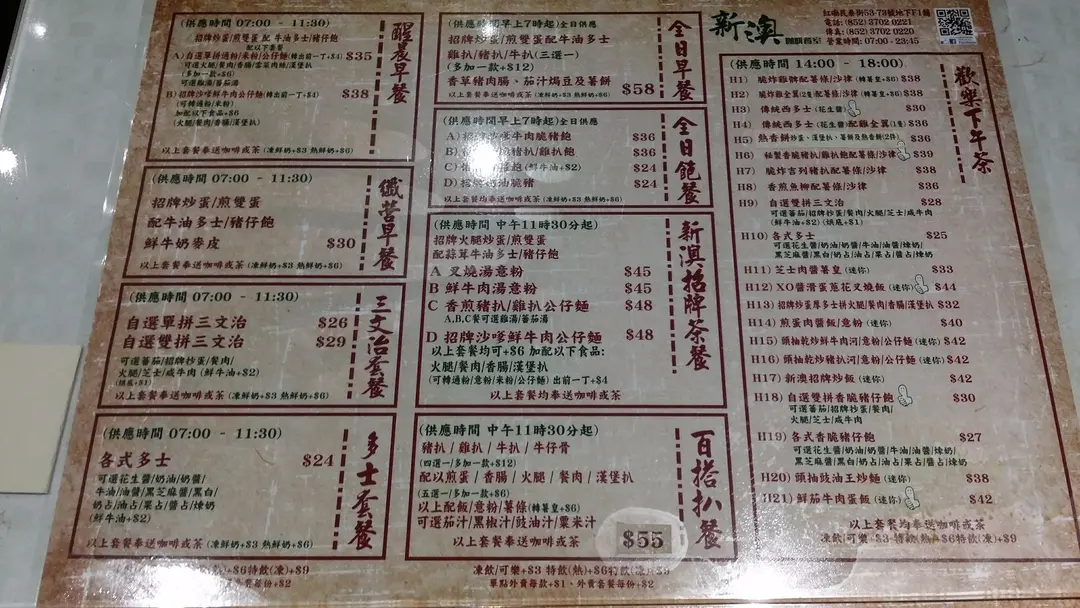 (供應時間 07:00 - 11:30)
招牌炒蛋/煎雙蛋 配 牛油多士/豬仔飽
配以下套餐
A)自選單拼通粉/米粉/公仔麵(轉出前一丁+$4) $35
可選火腿/餐肉/香腸/雪菜肉絲/漢堡扒
(多加一款+$6)
可選雞湯/蕃茄湯
B)招牌沙嗲鮮牛肉公仔麵(轉出前一丁+$4) $38
(可轉通粉/米粉)
加配以下食品+$6
(火腿/餐肉/香腸/漢堡扒)
以上套餐奉送咖啡或茶 (凍鮮奶+$3 熱鮮奶+$6)
醒晨早餐
(供應時間 07:00 - 11:30)
招牌炒蛋/煎雙蛋
配牛油多士/豬仔飽
鮮牛奶麥皮 $30
以上套餐奉送咖啡或茶 (凍鮮奶+$3 熱鮮奶+$6)
纖營早餐
(供應時間 07:00 - 11:30)
自選單拼三文治 $26
自選雙拼三文治 $29
可選蕃茄/招牌炒蛋/餐肉/
火腿/芝士/咸牛肉 (鮮牛油+$2)
(烘底+$1)
以上套餐奉送咖啡或茶 (凍鮮奶+$3 熱鮮奶+$6)
三文治套餐
(供應時間 07:00 - 11:30)
各式多士 $24
可選花生醬/奶油/奶醬/
牛油/油醬/黑芝麻醬/黑白/
奶占/油占/果占/醬占/煉奶
(鮮牛油+$2)
以上套餐奉送咖啡或茶 (凍鮮奶+$3 熱鮮奶+$6)
多士套餐
(供應時間早上7時起)全日供應
招牌炒蛋/煎雙蛋配牛油多士
雞扒/豬扒/牛扒(三選一)
(多加一款+$12)
香草豬肉腸、茄汁焗豆及薯餅
以上套餐奉送咖啡或茶 (凍鮮奶+$3 熱鮮奶+$6) $58
全日早餐
(供應時間早上7時起)全日供應
A) 牛肉脆豬飽 $36
B) 豬扒/雞扒飽 $36
C) 飽(鮮牛油+$2) $24
D) 奶油脆豬 $24
以上套餐奉送咖啡或茶 (凍鮮奶+$3 熱鮮奶+$6)
全日飽餐
(供應時間 中午11時30分起)
招牌火腿炒蛋/煎雙蛋
配蒜茸牛油多士/豬仔飽
A 叉燒湯意粉 $45
B 鮮牛肉湯意粉 $45
C 香煎豬扒/雞扒公仔麵 $48
A,B,C餐可選雞湯/蕃茄湯
D 招牌沙嗲鮮牛肉公仔麵 $48
以上套餐均可+$6 加配以下食品:
火腿/餐肉/香腸/漢堡扒
(可轉通粉/意粉/米粉/公仔麵) 出前一丁+$4
以上套餐均奉送咖啡或茶
新澳招牌茶餐
(供應時間 中午11時30分起)
豬扒 / 雞扒 / 牛扒 / 牛仔骨
(四選一/多加一款+$12)
配以煎蛋 / 香腸 / 火腿 / 餐肉 / 漢堡扒
(五選一/多加一款+$6)
以上配飯/意粉/薯條(轉薯皇+$6)
可選茄汁/黑椒汁/豉油汁/粟米汁
以上套餐奉送咖啡或茶 $55
百搭扒餐
新澳
咖啡餐室
紅磡民泰街53-73號地下F1舖
電話: (852) 3702 0221
傳真: (852) 3702 0220
營業時間: 07:00 - 23:45
(供應時間 14:00 - 18:00)
H1) 脆炸雞髀配薯條/沙律 (轉薯皇+$6) $38
H2) 脆炸雞全翼(2隻)配薯條/沙律 (轉薯皇+$6) $38
H3) 傳統西多士(花生醬) $30
H4) 傳統西多士(花生醬)配雞全翼(1隻) $36
H5) 熱香餅炒蛋、漢堡扒、薯餅及熱香餅(2件) $36
H6) 秘製香脆豬扒/雞扒飽配薯條/沙律 $39
H7) 脆炸吉列豬扒配薯條/沙律 $38
H8) 香煎魚柳配薯條/沙律 $36
H9) 自選雙拼三文治 $28
可選蕃茄/招牌炒蛋/餐肉/火腿/芝士/咸牛肉
(鮮牛油+$2) (烘底+$1)
H10) 各式多士 $25
可選花生醬/奶油/奶醬/牛油/油醬/煉奶/
黑芝麻醬/黑白/奶占/油占/果占/醬占/煉奶
H11) 芝士肉醬薯皇 (迷你) $33
H12) XO醬滑蛋蔥花叉燒飯 (迷你) $44
H13) 招牌炒蛋厚多士拼火腿/餐肉/香腸/漢堡扒 $32
H14) 煎蛋肉醬飯/意粉 (迷你) $40
H15) 頭抽乾炒鮮牛肉河/意粉/公仔麵 (迷你) $42
H16) 頭抽乾炒豬扒河/意粉/公仔麵 (迷你) $42
H17) 新澳招牌炒飯 (迷你) $42
H18) 自選雙拼香脆豬仔飽 $30
可選蕃茄/招牌炒蛋/餐肉/
火腿/芝士/咸牛肉
H19) 各式香脆豬仔飽 $27
可選花生醬/奶油/奶醬/牛油/油醬/煉奶/
黑芝麻醬/黑白/奶占/油占/果占/醬占/煉奶
H20) 頭抽豉油王炒麵 (迷你) $38
H21) 鮮茄牛肉蛋飯 (迷你) $42
以上套餐均奉送咖啡或茶
凍飲/可樂+$3 特飲(熱)+$6特飲(凍)+$9
歡樂下午茶
(熱)+$6特飲(凍)+$9
套餐每份+$2
凍飲/可樂+$3 特飲(熱)+$6特飲(凍)+$9
單點外賣每款+$1、外賣套餐每份+$2